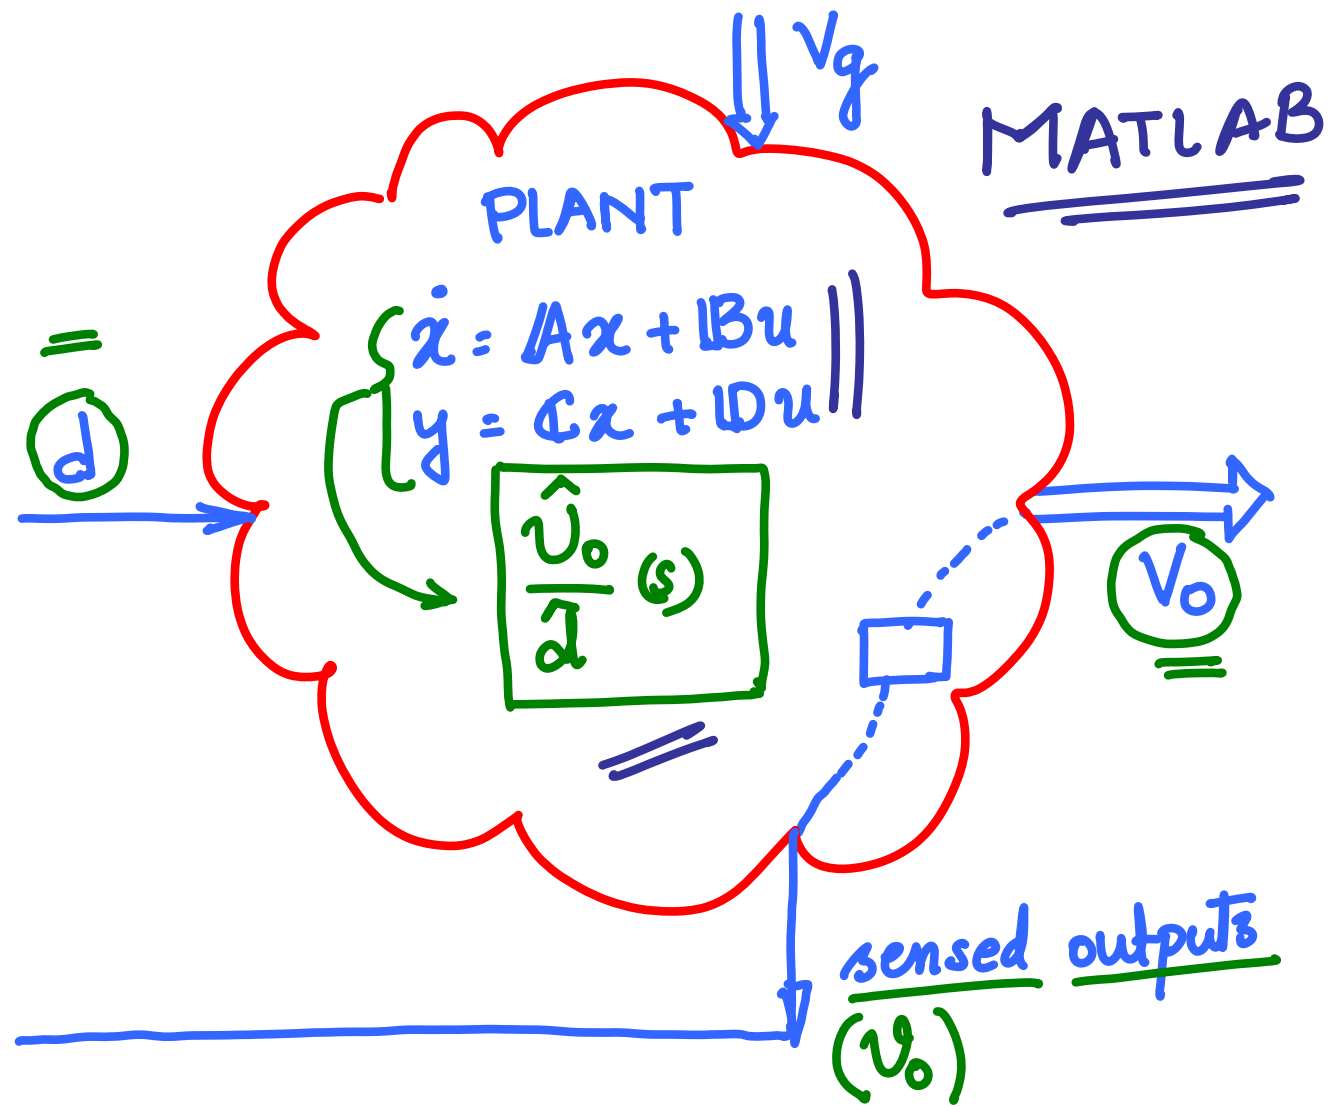 Vg
MATLAB
PLANT
ẋ = Ax + Bu
y = Cx + Du
d
v̂o
— (s)
d̂
Vo
sensed outputs
(vo)